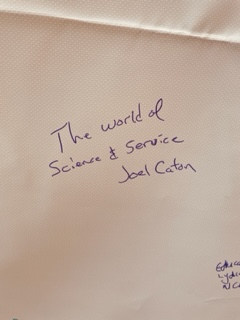 The world of
Science & Service
Joel Caton